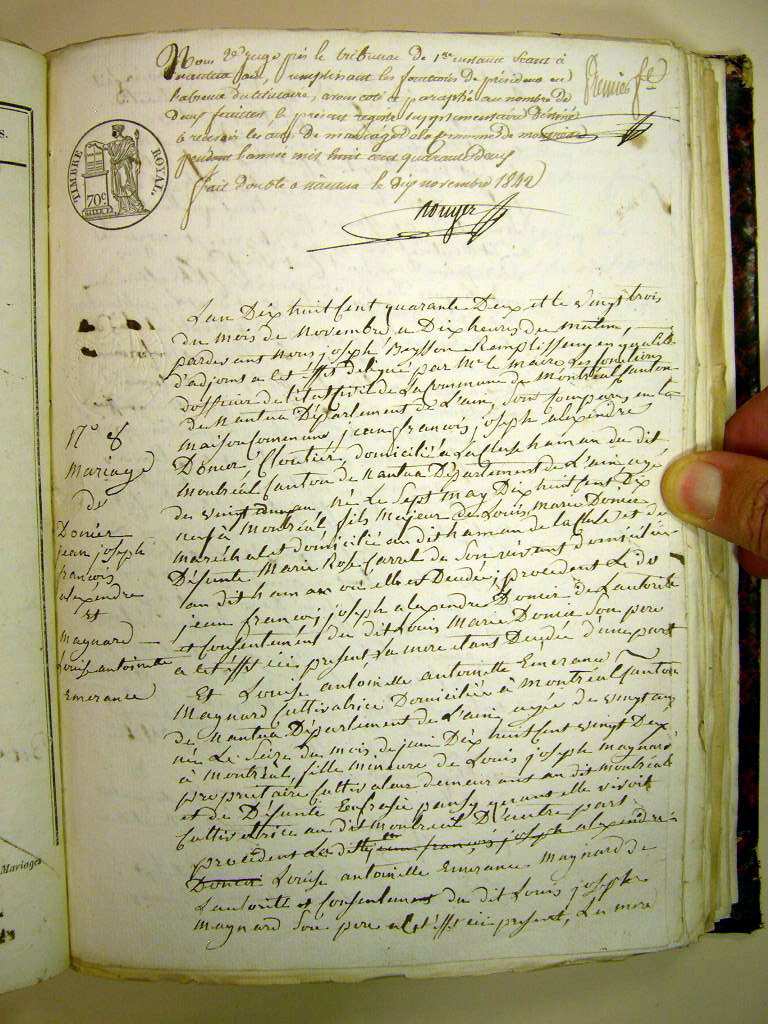 Nous Juge près le tribunal de 1ère instance séant à
nantua, remplissant les fonctions de président en
l'absence du titulaire, avons coté et paraphé au nombre de
Deux feuillets, le présent registre supplémentaire destiné
à recevoir les actes De mariages de la commune de montréal
pendant l'année mil huit cent quarante Deux
fait double a nantua le dix novembre 1842
Premier ft
TIMBRE ROYAL.
70c
s.
L'an Dix huit Sent quarante Deux et le vingt trois
du mois de Novembre a Dix heures du matin,
pardevant Nous joseph Beysson Remplissant en qualité
d'adjoint a cet éfft deleguè par Mr le maire Les fonctions
d'officier de l'état civil de La commune de Montréal Canton
de Nantua Département de L'ain, sont Comparus en la
maison commune, jean françois joseph alexendre
Donier, Cloutier, domicilié a La Cluse hamau du dit
Montréal Canton de Nantua Département de L'ain agé
de vingt neuf ans, Né Le Sept May Dix huit Sent Dix
à Montréal fils Majeur de Louis Marie Donier
maréchal et domicilié au dit hamau de la Cluse et de
Défunte Marie Rose Carrel de Son vivant domiciliée
au dit hamau où elle est Decédée; procedant Le dt
jean françois joseph alexendre Donier de L'autorité
et Consentement du dit Louis Marie Donier Son pere
a cet éfft ici présent, La mere etant Decédée d'une part
Et Louise antoinette antoinette Emerance
Maynard Cultivatrice Domiciliée à Montréal Canton
de Nantua Département de L'ain, agée de vingt ans
née Le Seize du mois de juin Dix huit Sent vingt Deux
à Montréal, fille mineure de Louis joseph Maynard
propriétaire Cultivateur demeurant au dit Montréal
et de Défunte Eufrasie pansy quand elle vivoit
Cultivatrice au dit Montréal D'autre part
procédent La ditte jean françois joseph alexendre
Donier Louise antoinette Emerance Maynard de
L'autorité et Consentement du dit Louis joseph
Maynard Son pere a cet éfft ici présent, La mere
No 8
Mariage
de
Donier
jean joseph
françois
alexendre
et
Maynard
Louise antoinette
Emerance
Mariages